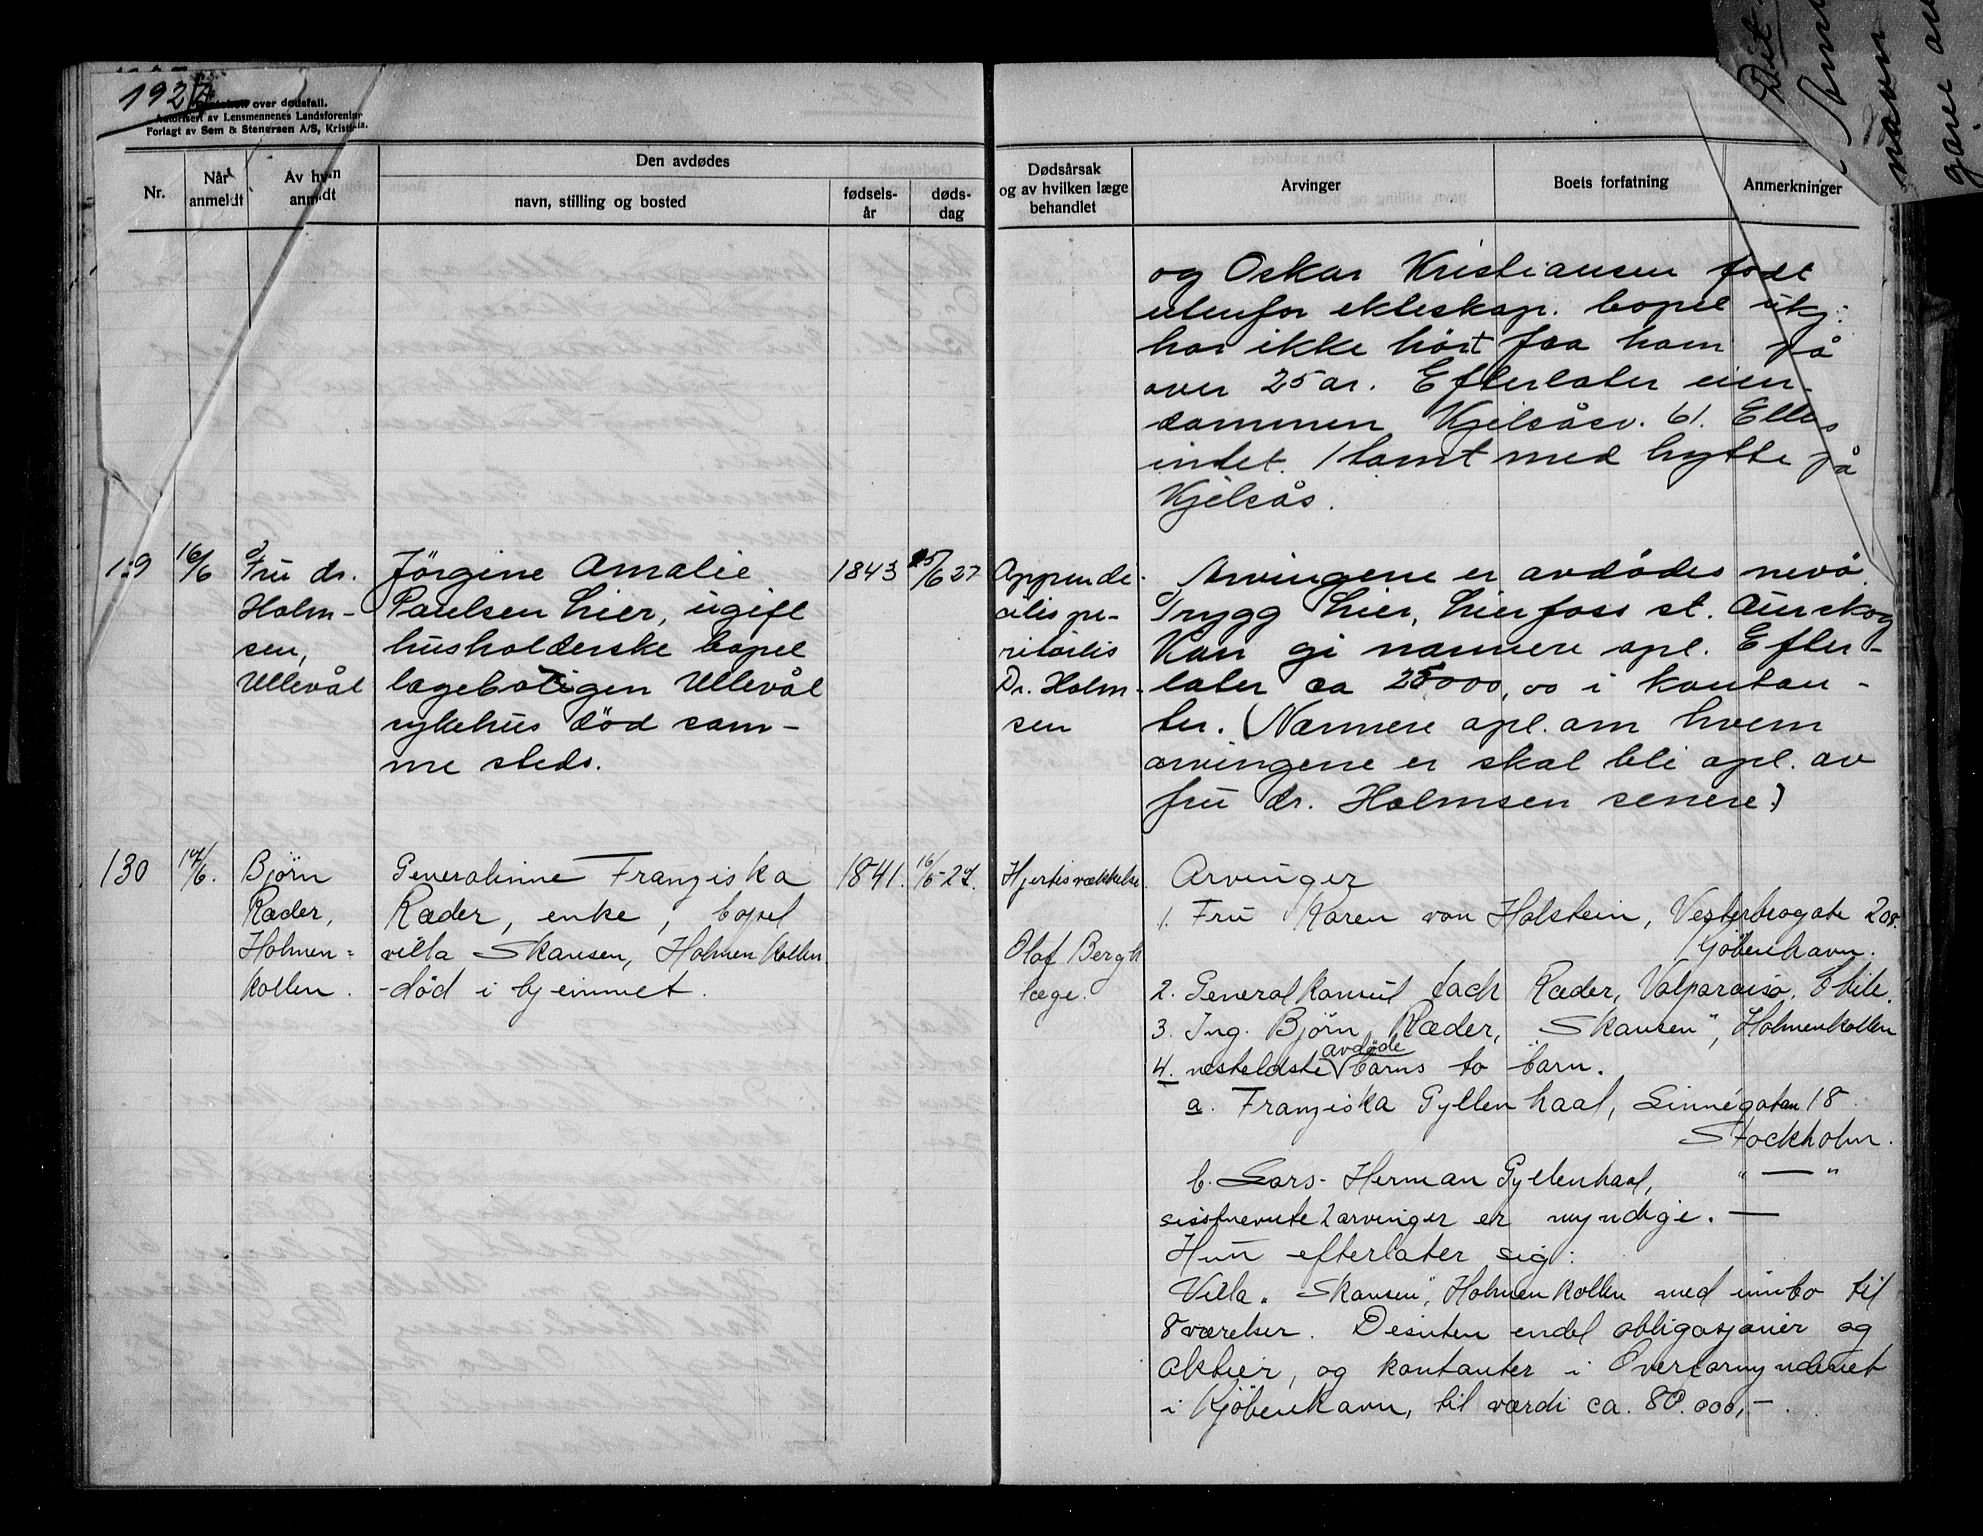 1927
Protokoll over dødsfall.
Autorisert av Lensmennenes Landsforening
Forlagt av Sem & Stenersen A/S, Kristiania.
Nr.
Når anmeldt
Av hvem anmeldt
Den avdødes
navn, stilling og bosted
fødsels-
år
døds-
dag
Dødsårsak
og av hvilken læge
behandlet
Arvinger
Boets forfatning
Anmerkninger
og Oskar Kristiansen født
utenfor ekteskap. bopel ukj:
har ikke hørt fra ham på
over 25 år. Efterlater eien-
dommen Kjelsåsv. 61. Ellers
intet. 1 tomt med hytte på
Kjelsås.
129
16/6
Fru dr.
Holm-
sen,
Ullevål
Jörgine Amalie
Paulsen Lier, ugift
husholderske bopel
legeboligen Ullevål
sykehus död sam-
me steds.
1843
15/6 27
Appendi-
citis pe-
ritoitis
Dr. Holm-
sen
Arvingene er avdødes nevø
Trygg Lier, Lierfoss st. Aurskog
Kan gi nærmere opl. Efter-
later ca 25000,00 i kontan-
ter. (Nærmere opl. om hvem
arvingene er skal bli opl. av
fru dr. Holmsen senere.)
130
17/6.
Bjørn
Ræder,
Holmen=
kollen.
Generalinne Franziska
Ræder, enke, bopel
villa Skansen, Holmenkollen
-död i hjemmet.
1841.
16/6-27.
Hjertesvækkelse.
Olaf Bergh
læge.
Arvinger
1. Fru Karen von Holstein, Vesterbrogate 208.
Kjöbenhavn.
2. Generalkonsul Jack Ræder, Valparaiso. Chile.
3. Ing. Bjørn Ræder, "Skansen", Holmenkollen
avdöde
4. nesteldste barns to barn.
a. Franziska Gyllenhaal, Linnégatan 18
Stockholm.
b. Lars-Herman Gyllenhaal, " — "
sistnevnte 2 arvinger er myndige. —
Hun efterlater sig:
Villa "Skansen", Holmenkollen med innbo til
8 værelser. Desuten endel obligasjoner og
aktier, og kontanter i Overformynderiet
i Kjöbenhavn, til værdi ca. 80.000,-.
navn